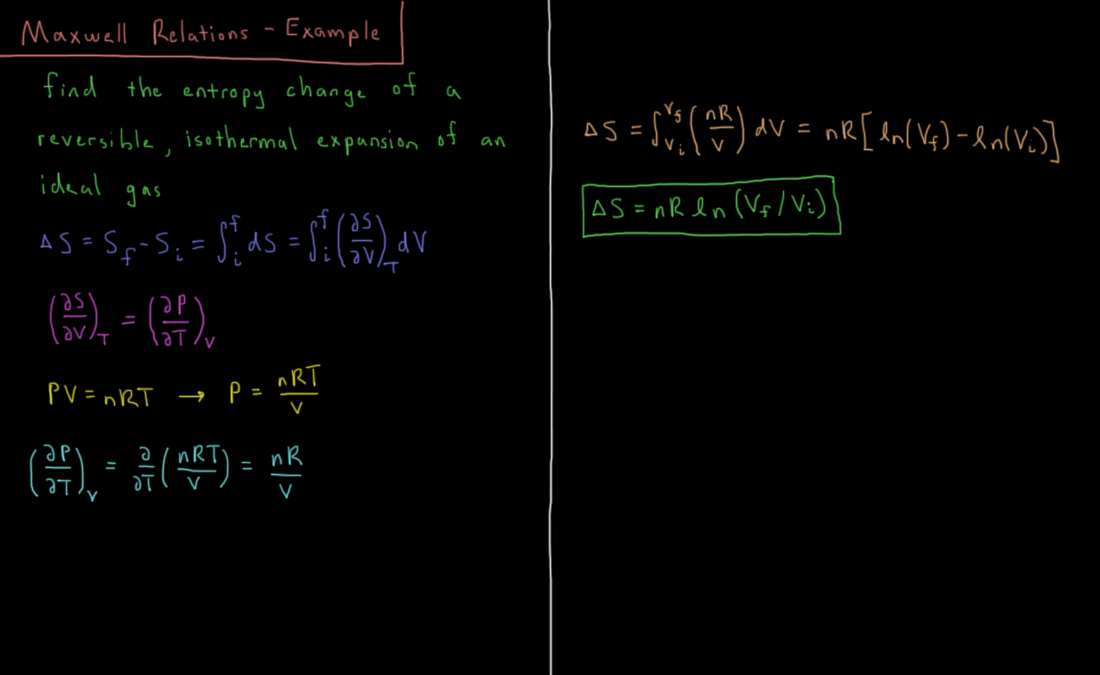 Maxwell Relations - Example
find the entropy change of a
reversible, isothermal expansion of an
ideal gas
ΔS = S_f - S_i = ∫_i^f dS = ∫_i^f (∂S/∂V)_T dV
(∂S/∂V)_T = (∂P/∂T)_V
PV = nRT → P = nRT/V
(∂P/∂T)_V = ∂/∂T (nRT/V) = nR/V
ΔS = ∫_{V_i}^{V_f} (nR/V) dV = nR[ln(V_f) - ln(V_i)]
ΔS = nR ln(V_f/V_i)